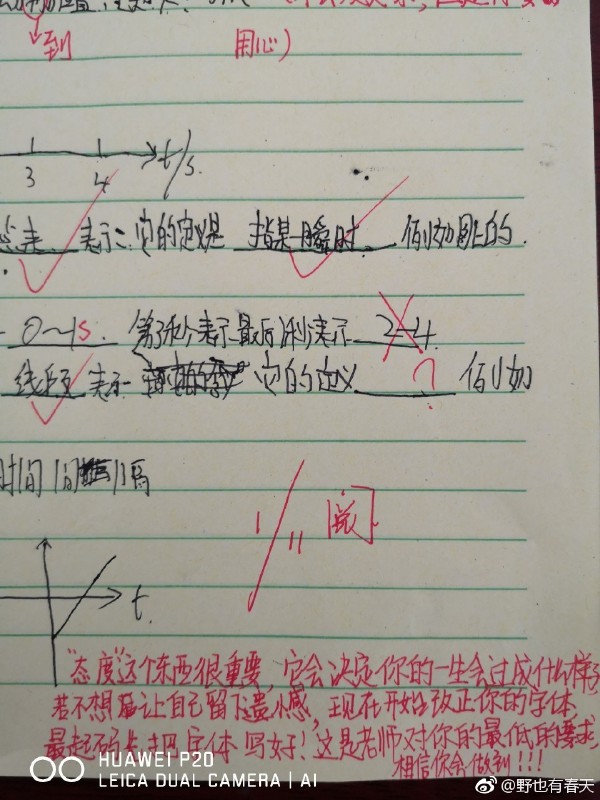 到
用心）
3 4 t/s
表示：它的定义是 指某瞬时 例如图上的
0~1s. 第n秒表示最后1秒表示 2-4
线段 表示 它的定义 ? 例如
时间间隔
1/11 阅
t
"态度"这个东西很重要，它会决定你的一生会过成什么样子
若不想让自己留下遗憾，现在开始改正你的字体，
最起码去把字体写好！这是老师对你的最低的要求，
相信你会做到！！！
HUAWEI P20
LEICA DUAL CAMERA | AI
@野也有春天